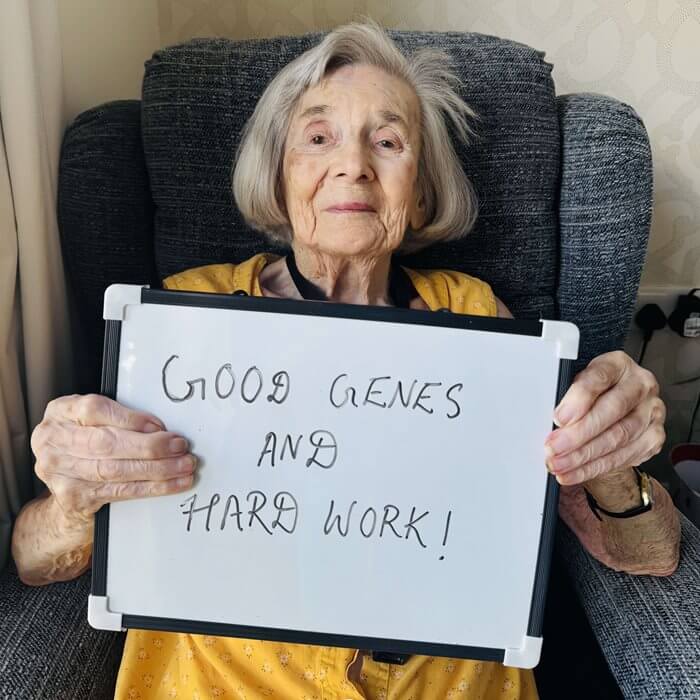 GOOD GENES
AND
HARD WORK!